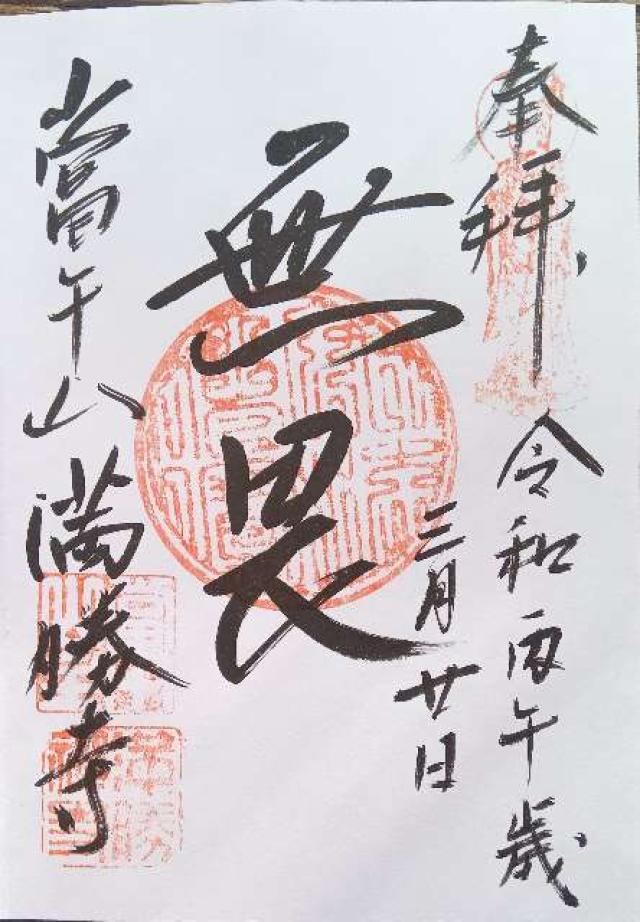 奉拝
令和丙午歳
三月廿日
無畏
當午山満勝寺